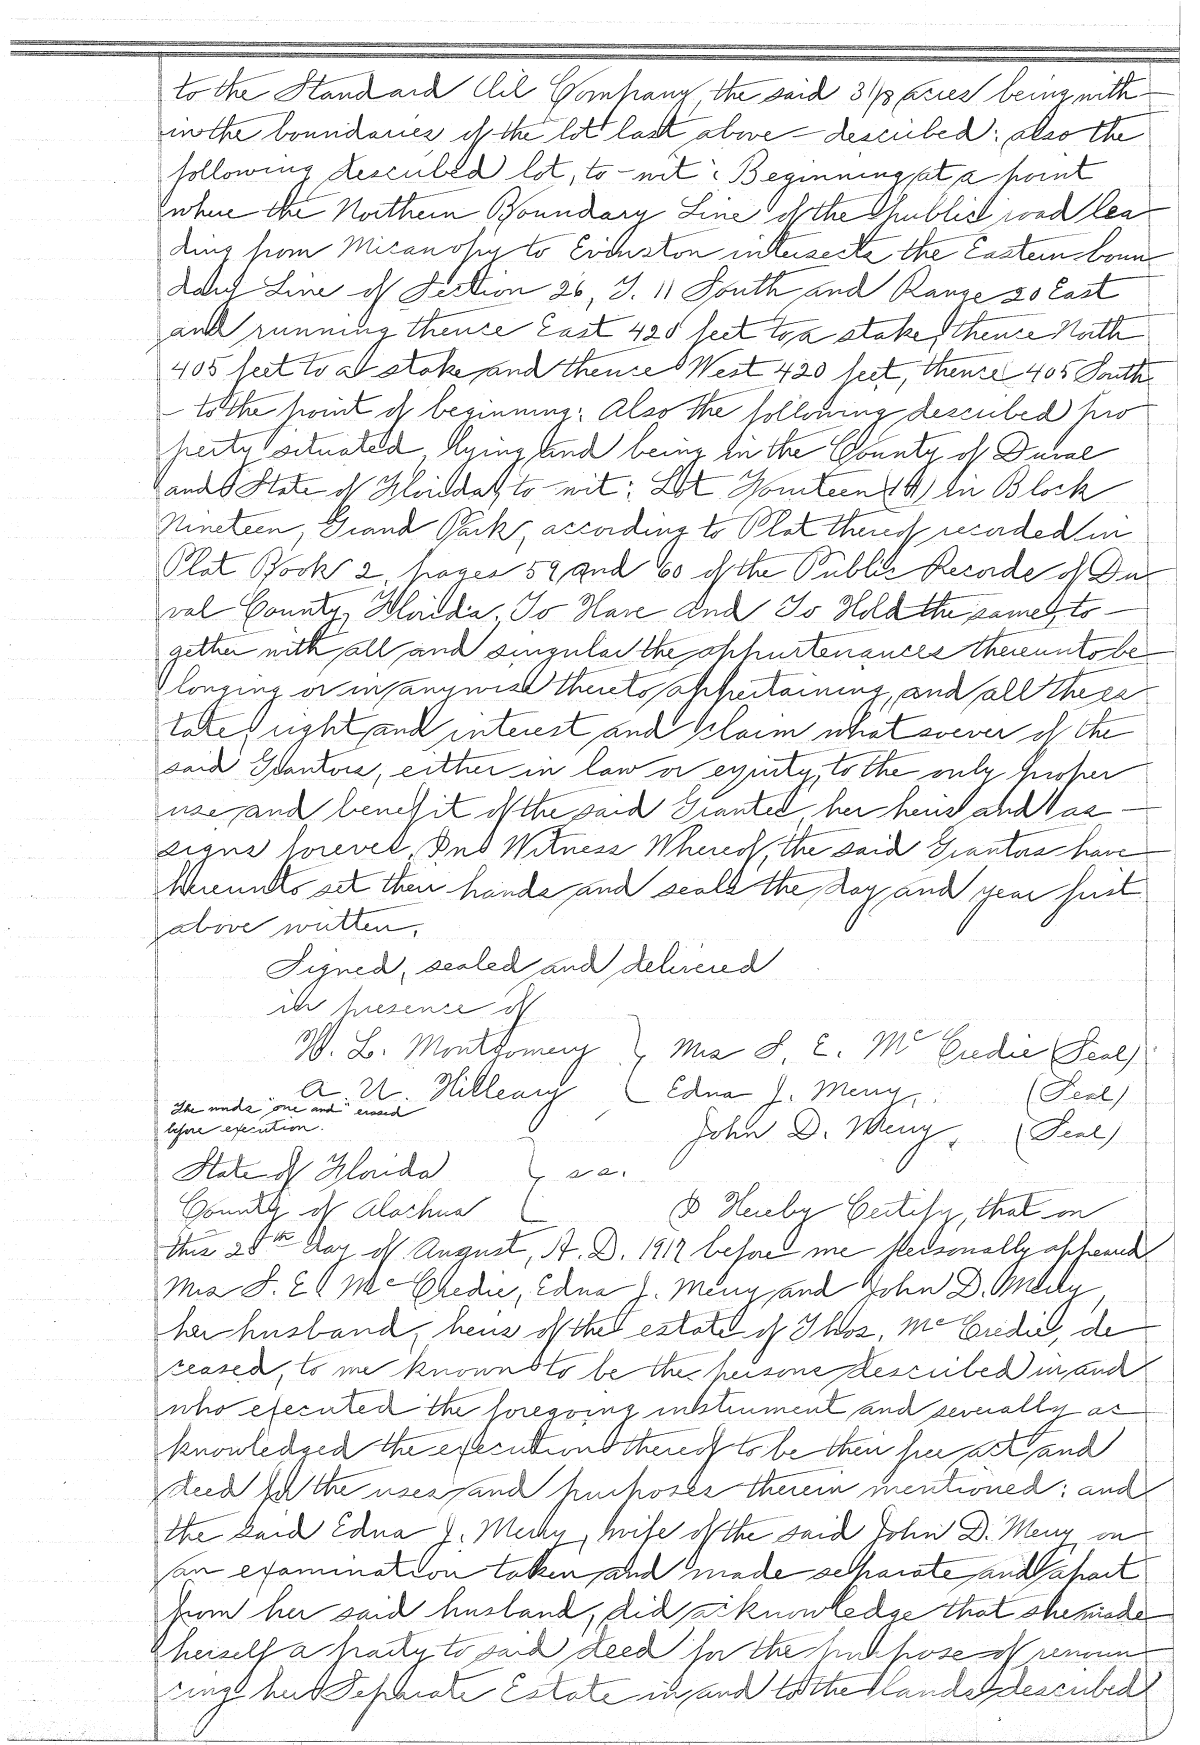 to the Standard Oil Company, the said 3 1/8 acres being with-
in the boundaries of the lot last above-described: also the
following described lot, to-wit: Beginning at a point
where the Northern Boundary Line of the public road lea-
ding from Micanopy to Evinston intersects the Eastern boun
dary Line of Section 26, T. 11 South and Range 20 East
and running thence East 420 feet to a stake, thence North
405 feet to a stake and thence West 420 feet, thence 405 South
- to the point of beginning: Also the following described pro
perty situated, lying and being in the County of Duval
and State of Florida, to-wit: Lot Fourteen (14) in Block
Nineteen, Grand Park, according to Plat thereof recorded in
Plat Book 2, pages 59 and 60 of the Public Records of Du
val County, Florida. To Have and To Hold the same, to-
gether with all and singular the appurtenances thereunto be-
longing or in anywise thereto appertaining, and all the es
tate, right and interest and claim whatsoever of the
said Grantors, either in law or equity, to the only proper
use and benefit of the said Grantee, her heirs and as-
signs forever. In Witness Whereof, the said Grantors have
hereunto set their hands and seals the day and year first
above written.
Signed, sealed and delivered
in presence of
W. L. Montgomery } Mrs S. E. McCredie (Seal)
A. U. Hilleary { Edna J. Merry, (Seal)
The words "one and" erased
before execution.
John D. Merry, (Seal)
State of Florida } ss.
County of Alachua { I Hereby Certify, that on
this 28th day of August, A. D. 1917 before me personally appeared
Mrs S. E. McCredie, Edna J. Merry and John D. Merry,
her husband, heirs of the estate of Thos. McCredie, de
ceased, to me known to be the persons described in and
who executed the foregoing instrument and severally ac
knowledged the execution thereof to be their free act and
deed for the uses and purposes therein mentioned: and
the said Edna J. Merry, wife of the said John D. Merry, on
an examination taken and made separate and apart
from her said husband, did acknowledge that she made
herself a party to said deed for the purpose of renoun
cing her Separate Estate in and to the lands described